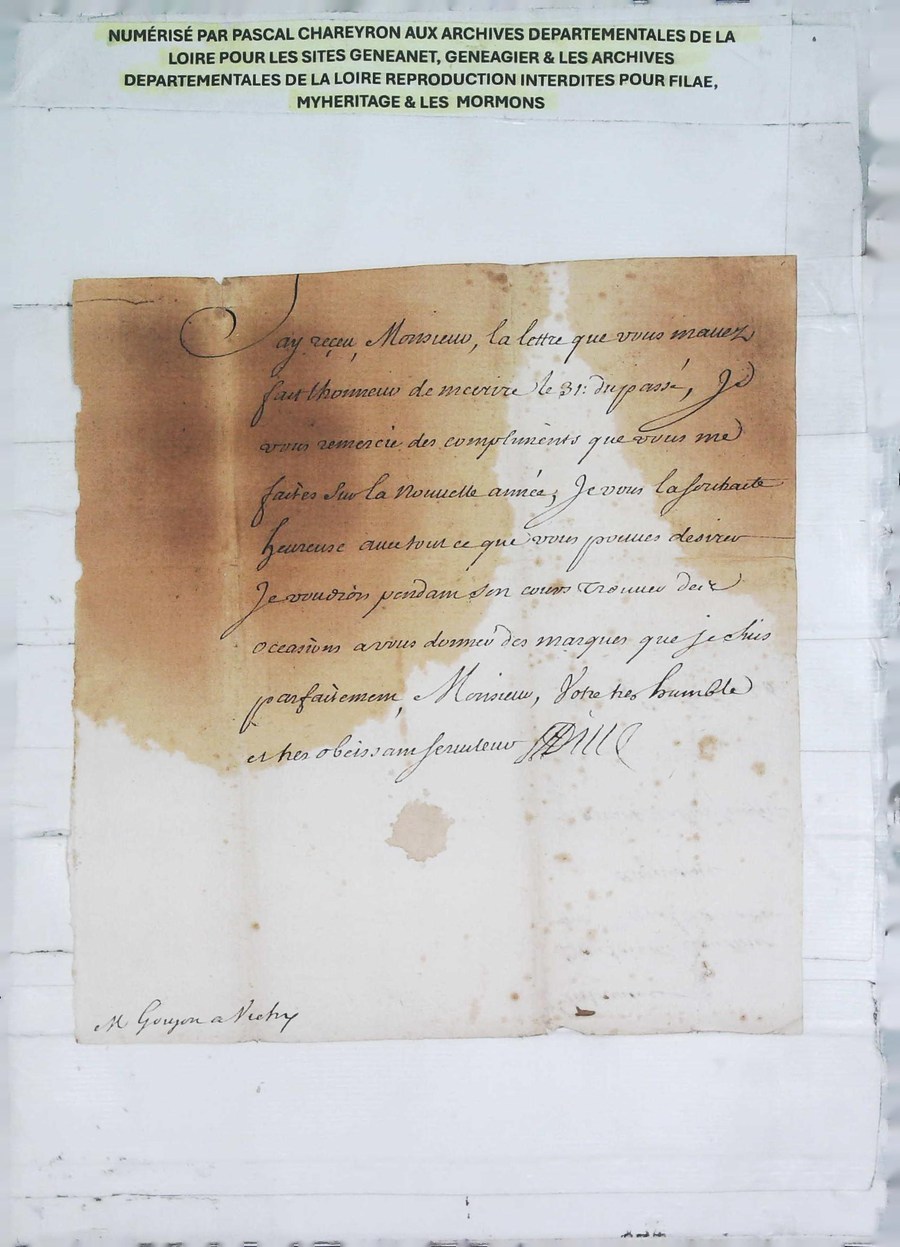 NUMÉRISÉ PAR PASCAL CHAREYRON AUX ARCHIVES DEPARTEMENTALES DE LA
LOIRE POUR LES SITES GENEANET, GENEAGIER & LES ARCHIVES
DEPARTEMENTALES DE LA LOIRE REPRODUCTION INTERDITES POUR FILAE,
MYHERITAGE & LES MORMONS
Jay reçeu, Monsieur, la lettre que vous mauez
fait lhonneur de mecrire le 31: du passé, Je
vous remercie des compliments que vous me
faites sur la Nouuelle année, Je vous la souhaite
heureuse auec tout ce que vous pouués desirer
Je voudrois pendant son cours trouuer des
occasions a vous donner des marques que je suis
parfaitement, Monsieur, Votre tres humble
et tres obeissant seruiteur
M Goujon a Vichy